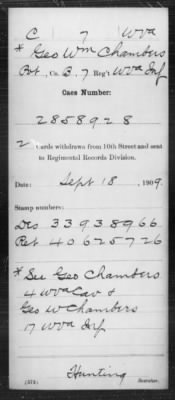 C 7 WVa
* Geo Wm Chambers
Pvt., Co. B, 7 Reg't WVa Inf
Case Number:
2858928
2 Cards withdrawn from 10th Street and sent
to Regimental Records Division.
Date: Sept 18, 1909.
Stamp numbers:
Des 33938966
Ret 40625726
* See Geo Chambers
4 WVa Cav &
Geo W Chambers
17 WVa Inf
Hunting
(572) Searcher.